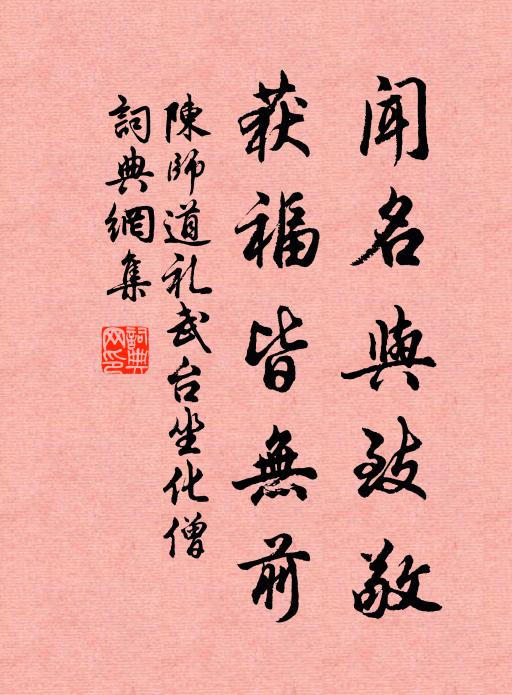 闻名與致敬
获福皆無前
陳師道礼武台坐化僧
詞典網集
詞典
网印